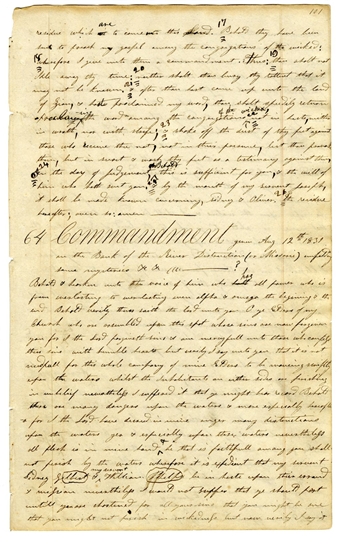 101
are
residue which to come unto this land. Behold they have been
sent to preach my gospel among the congregations of the wicked;
wherefore I give unto them a commandment thus: thou shalt not
Idle away thy time; neither shalt thou bury thy talent that it
may not be known; & after thou hast come up unto the land
of Zion, & hast proclaimed my word thou shalt speedily return
word among the congregations not in haste
in wrath, nor with strife; & shake off the dust of thy feet against
those who receive thee not, not in their presence, lest thou provoke
them, but in secret & wash thy feet as a testimony against them
in the day of judgement; Behold this is sufficient for you, & the will of
him who hath sent you. & by the mouth of my servant Joseph,
it shall be made known concerning, Sidney & Oliver. The residue
hereafter; even so; amen
64 Commandment given Aug 12th 1831
on the Bank of the River Destruction (or Missorie) unfolding
some mysteries &c &c
Behold & hearken unto the voice of him who hath all power who is
from everlasting to everlasting even alpha & omega the beginning & the
end Behold verily thus saith the Lord unto you O ye Elders of my
Church who are assembled upon this spot whose sins are now forgiven
you for I the Lord forgiveth sins & am mercifull unto those who confess
their sins with humble hearts but verily I say unto you that it is not
needfull for this whole company of mine Elders to be moveing swiftly
upon the waters whilst the inhabitants on either side are perishing
in unbelief nevertheless I suffered it that ye might bear record Behold
there are many dangers upon the waters & more especially hereafter
for I the Lord have decreed in mine anger many destructions
upon the waters yea & especially upon these waters nevertheless
all flesh is in mine hand he that is faithfull among you shall
not perish by the waters wherefore it is expedient that my servent
Sidney Gilbert & William Phelps be in haste upon their errand
& mission nevertheless I would not suffer that ye should part
until ye are chastened for all your sins that you might be one
that you might not perish in wickedness but now verily I say it